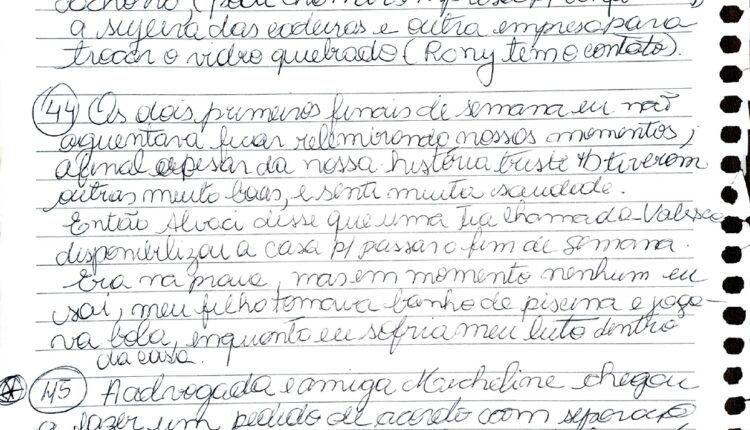 a sujeira das cadeiras e outra empresa para
trocar o vidro quebrado (Rony tem o contato).
44 Os dois primeiros finais de semana eu não
aguentava ficar relembrando nossos momentos,
afinal apesar da nossa história triste tiverom
outras muito boas, e senti muita saudade.
Então Alvaci disse que uma Tia chamada
disponibilizou a casa p/ passar o fim de semana.
Era na praia, mas em momento nenhum eu
sai, meu filho tomava banho de piscina e joga-
va bola, enquanto eu sofria meu luto dentro
da casa.
45 A advogada e amiga Marcheline chegou
a fazer um pedido de acordo com